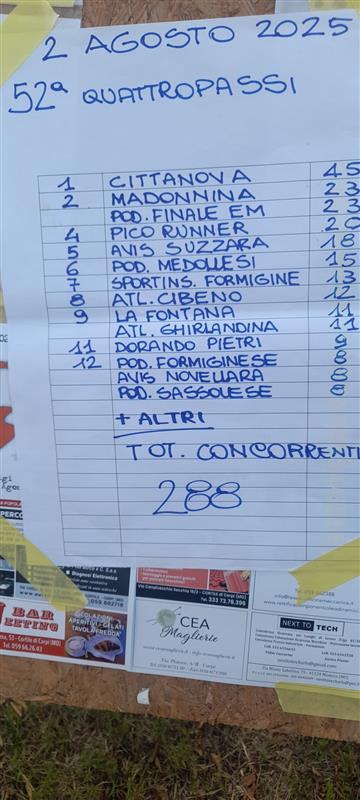 2 AGOSTO 2025
52ª QUATTROPASSI
1 CITTANOVA 45
2 MADONNINA 23
POD. FINALE EM 23
4 PICO RUNNER 20
5 AVIS SUZZARA 18
6 POD. MEDOLLESI 15
7 SPORTINS. FORMIGINE 13
8 ATL. CIBENO 12
9 LA FONTANA 11
ATL. GHIRLANDINA 11
11 DORANDO PIETRI 9
12 POD. FORMIGINESE 8
AVIS NOVELLARA 8
POD. SASSOLESE 8
+ ALTRI
TOT. CONCORRENTI
288
Diagnosi Elettronica
Tel. 333 73.78.396
BAR
APERITIVI - GELATI
TAVOLA FREDDA
Tel. 059 66.26.43
CEA
Maglierie
NEXT TO TECH